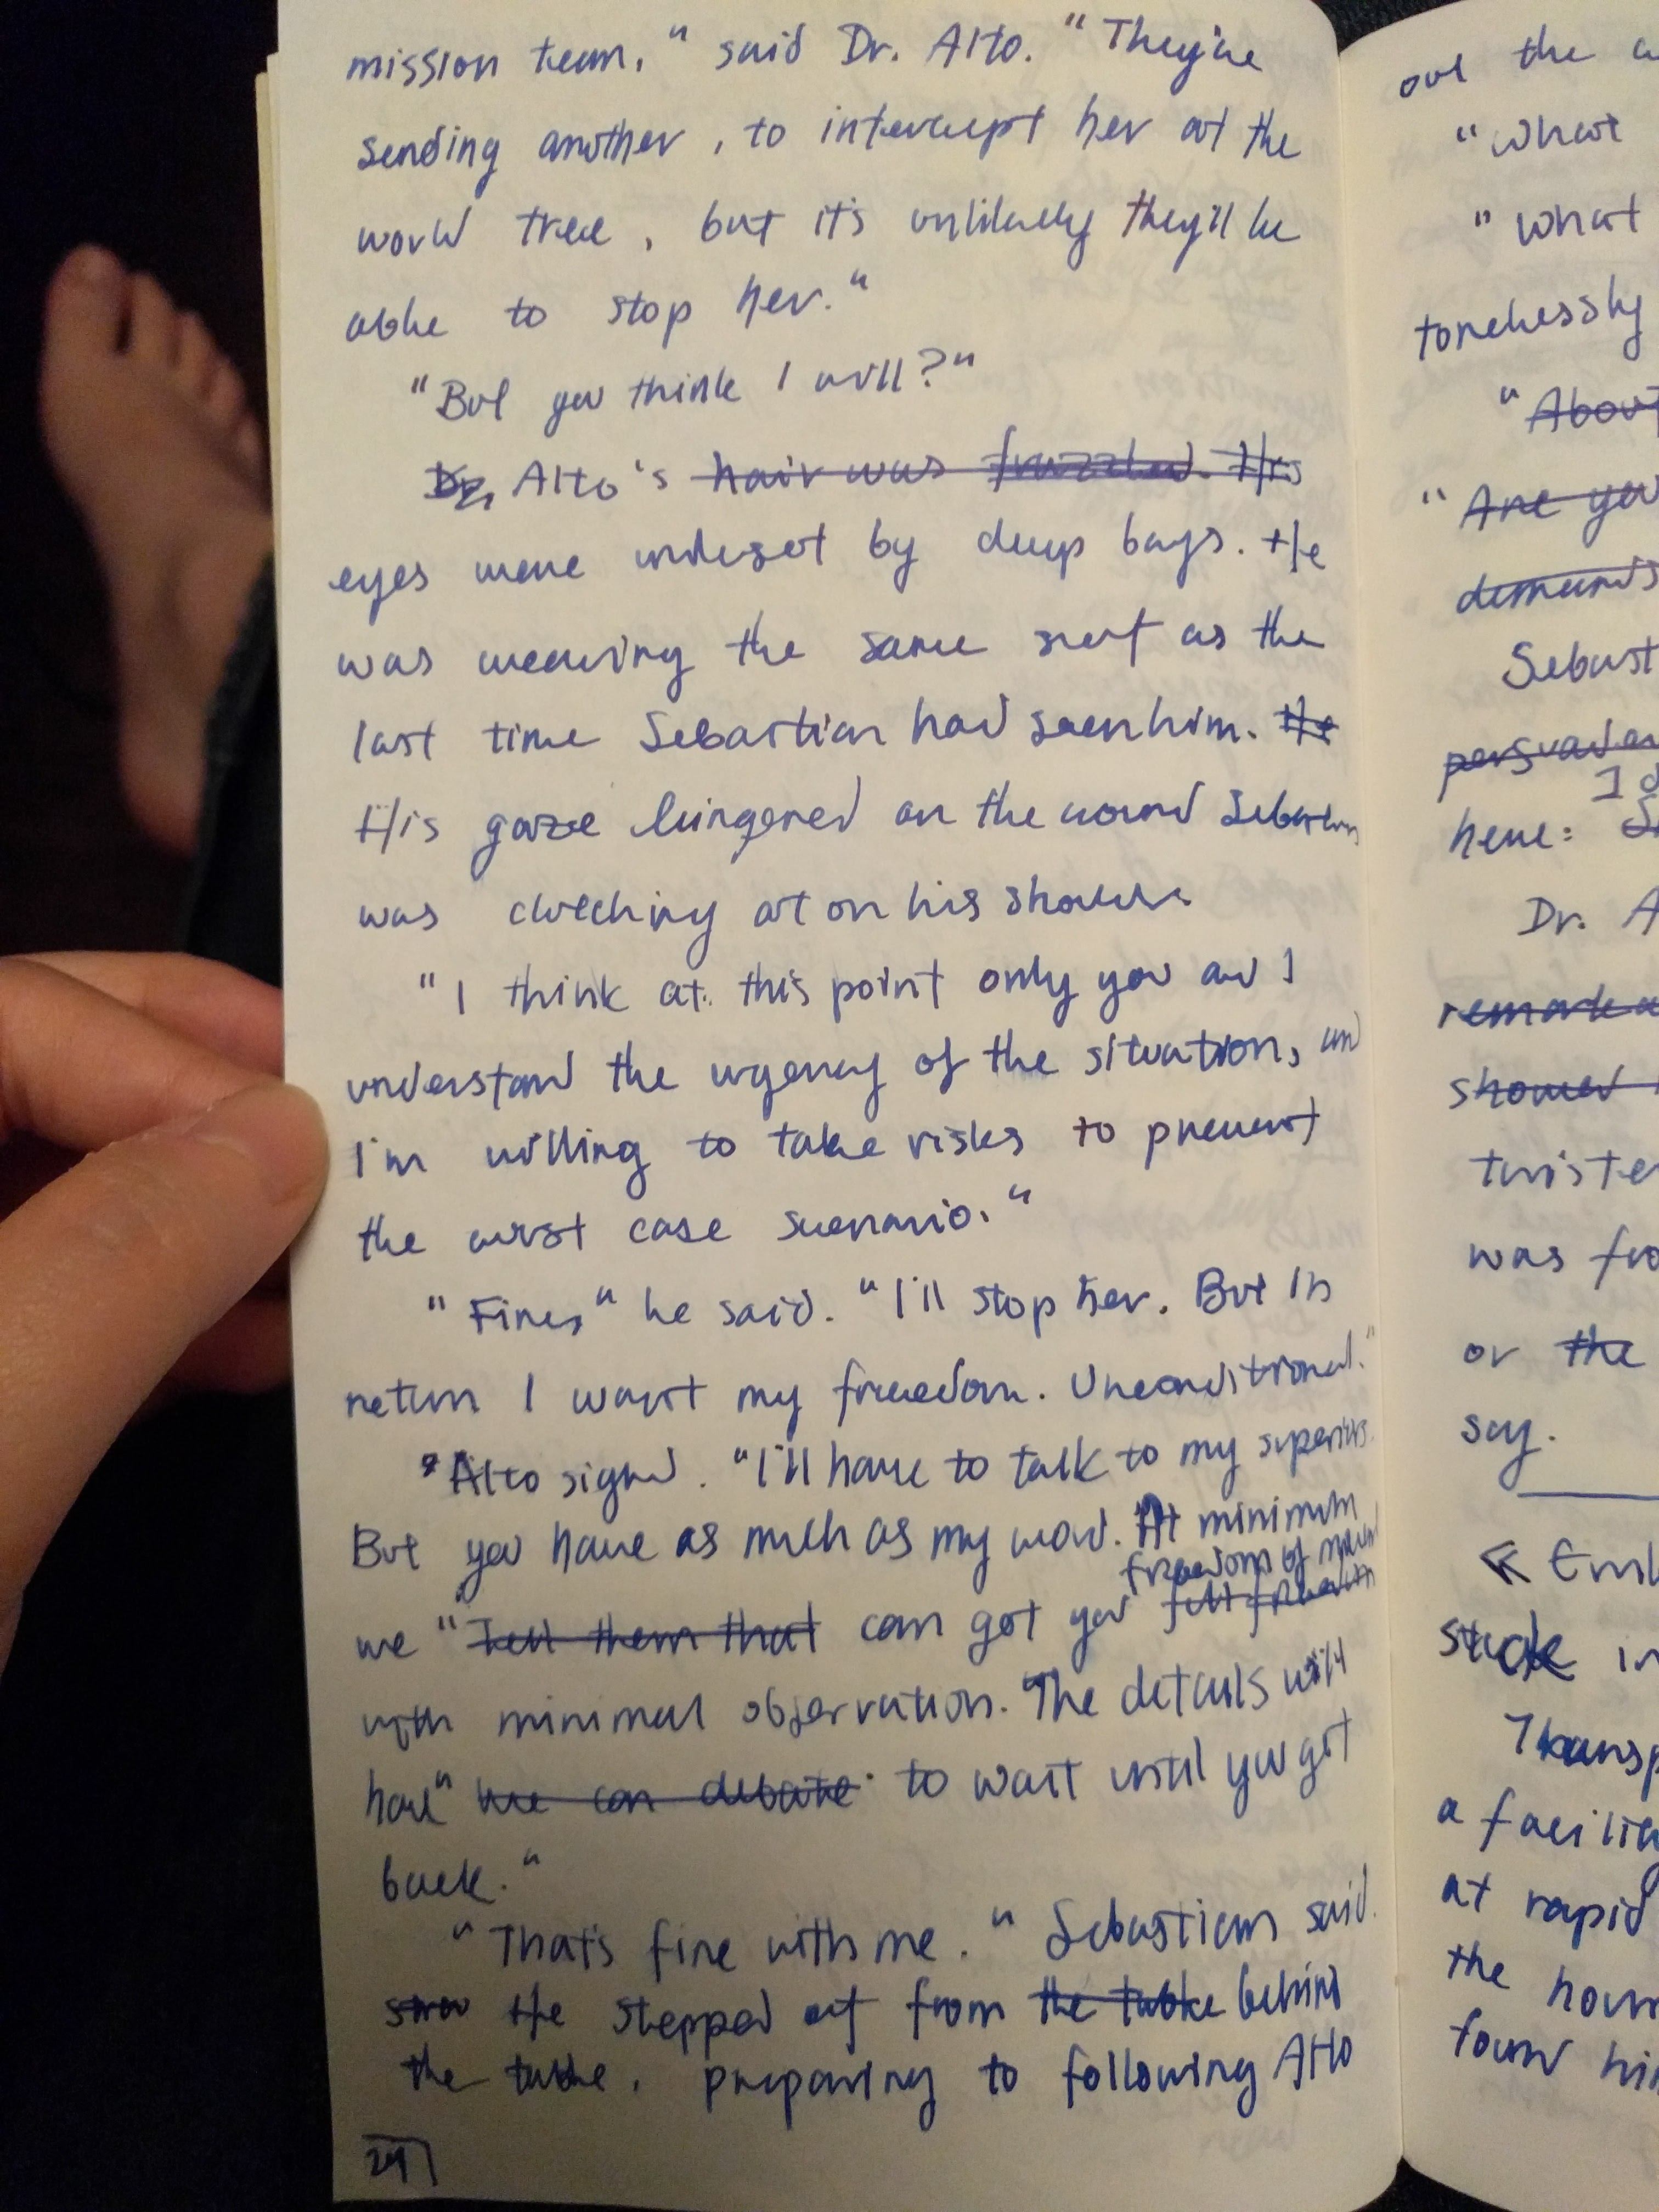 mission team," said Dr. Alto. "They're
sending another, to intercept her at the
world tree, but it's unlikely they'll be
able to stop her."
"But you think I will?"
Dr. Alto's hair was frazzled. His
eyes were underset by deep bags. He
was wearing the same suit as the
last time Sebastian had seen him. He
His gaze lingered on the wound Sebastian
was clutching at on his shoulder.
"I think at this point only you and I
understand the urgency of the situation, and
I'm willing to take risks to prevent
the worst case scenario."
"Fine," he said. "I'll stop her. But in
return I want my freedom. Unconditional."
Alto sighed. "I'll have to talk to my superiors.
But you have as much as my word. At minimum
freedom of
we "Tell them that can get you full
with minimal observation. The details will
have" we can debate. to wait until you get
back."
"That's fine with me." Sebastian said.
He stepped out from the table behind
the table, preparing to following Alto
241
out the
"What
"What
tonelessly
"About
"Are you
demands
Sebast
here:
Dr. A
remark
showed
twisted
was fro
or the
say.
Emil
stuck in
Transp
a facility
at rapid
the hour
found him